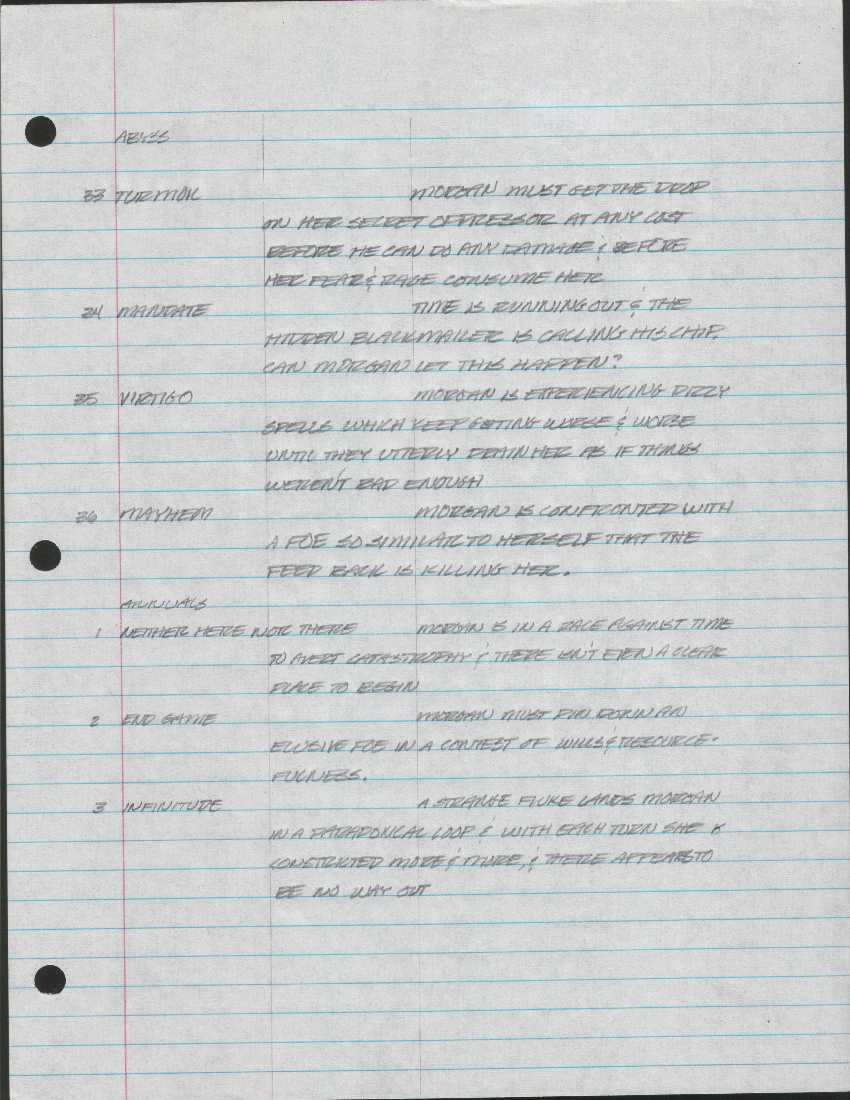 ABYSS
33 TURMOIL MORGAN MUST GET THE DROP
ON HER SECRET OPPRESSOR AT ANY COST
BEFORE HE CAN DO ANY DAMAGE & BEFORE
HER FEAR & RAGE CONSUME HER
34 MANDATE TIME IS RUNNING OUT & THE
HIDDEN BLACKMAILER IS CALLING HIS CHIP.
CAN MORGAN LET THIS HAPPEN?
35 VIRTIGO MORGAN IS EXPERIENCING DIZZY
SPELLS WHICH KEEP GETTING WORSE & WORSE
UNTIL THEY UTTERLY DRAIN HER AS IF THINGS
WEREN'T BAD ENOUGH
36 MAYHEM MORGAN IS CONFRONTED WITH
A FOE SO SIMILAR TO HERSELF THAT THE
FEED BACK IS KILLING HER.
ANNUALS
1 NEITHER HERE NOR THERE MORGAN IS IN A RACE AGAINST TIME
TO AVERT CATASTROPHY & THERE ISN'T EVEN A CLEAR
PLACE TO BEGIN
2 END GAME MORGAN MUST PIN DOWN AN
ELUSIVE FOE IN A CONTEST OF WILLS & RESOURCE-
FULNESS.
3 INFINITUDE A STRANGE FLUKE LANDS MORGAN
IN A PARADOXICAL LOOP & WITH EACH TURN SHE IS
CONSTRICTED MORE & MORE, & THERE APPEARS TO
BE NO WAY OUT